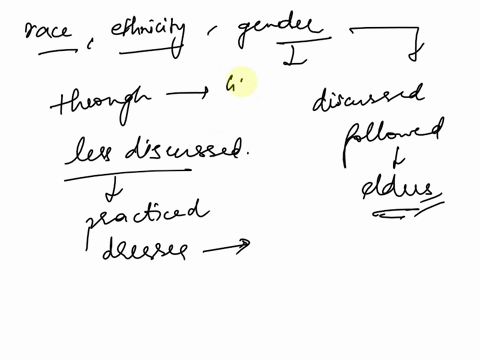 race, ethnicity, gender
through →
less discussed.
practiced
dresses →
discussed
followed
elders